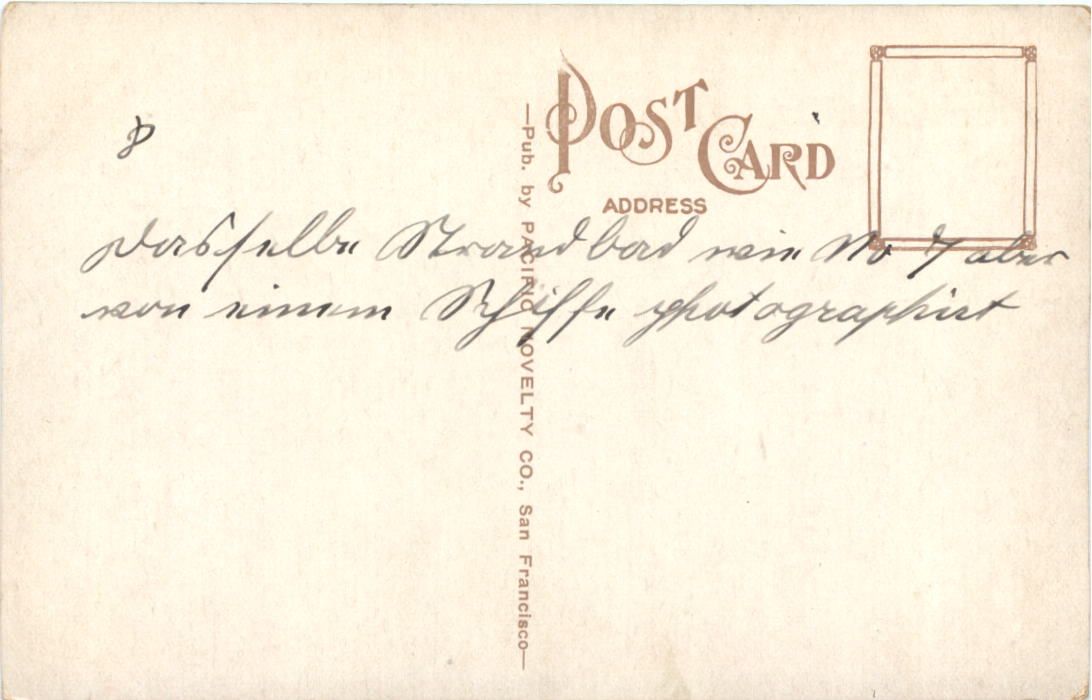 POST CARD
ADDRESS
8
Dasselbe Strandbad wie No 7 aber
von einem Schiffe photographirt
—Pub. by PACIFIC NOVELTY CO., San Francisco—